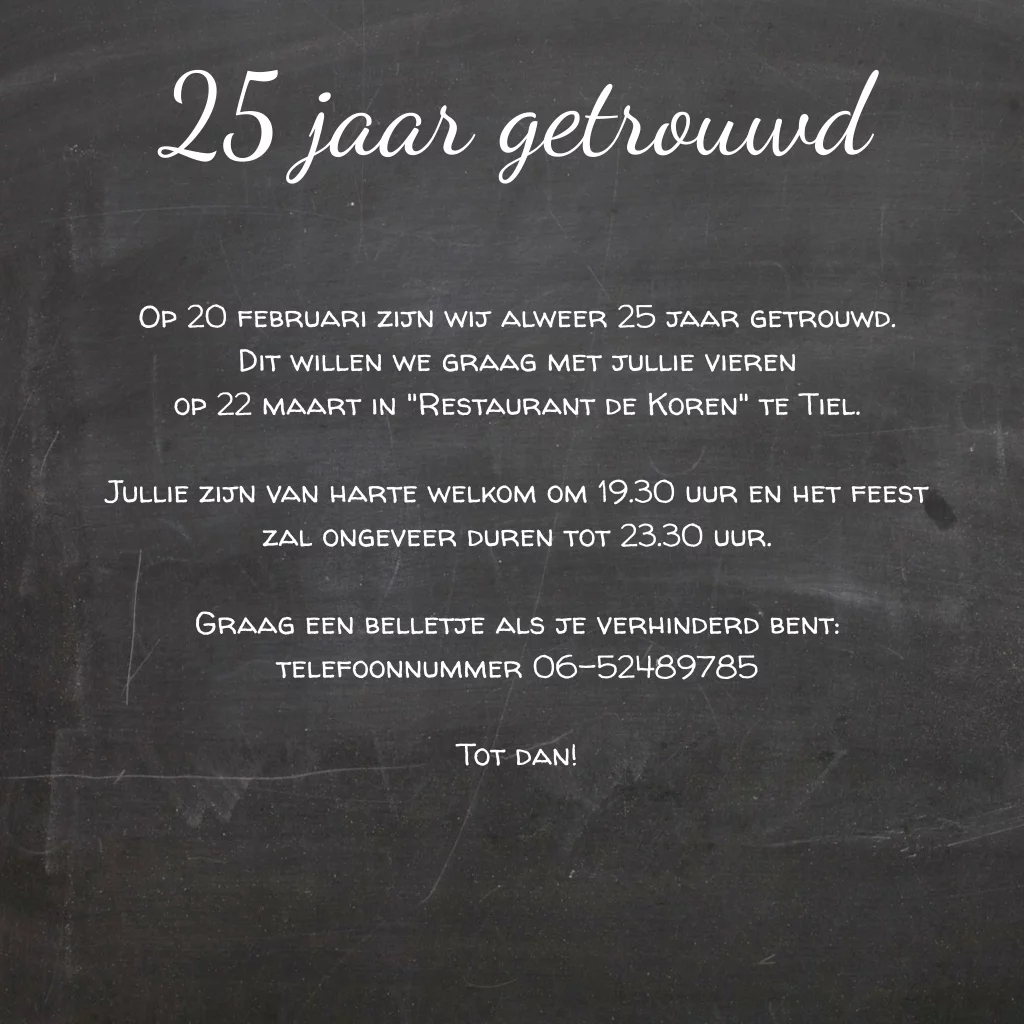 25 jaar getrouwd
Op 20 februari zijn wij alweer 25 jaar getrouwd.
Dit willen we graag met jullie vieren
op 22 maart in "Restaurant de Koren" te Tiel.
Jullie zijn van harte welkom om 19.30 uur en het feest
zal ongeveer duren tot 23.30 uur.
Graag een belletje als je verhinderd bent:
telefoonnummer 06-52489785
Tot dan!